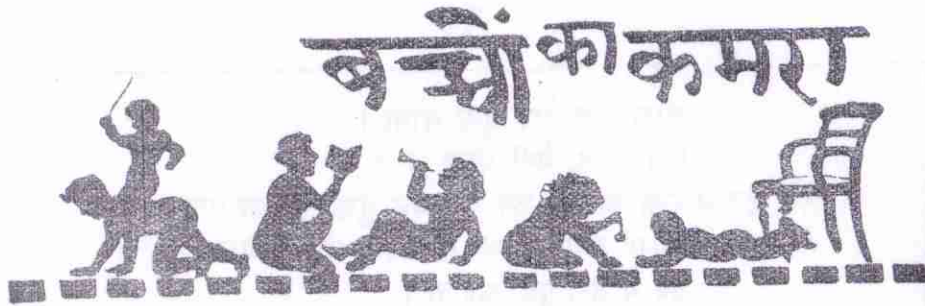 बच्चों का कमरा